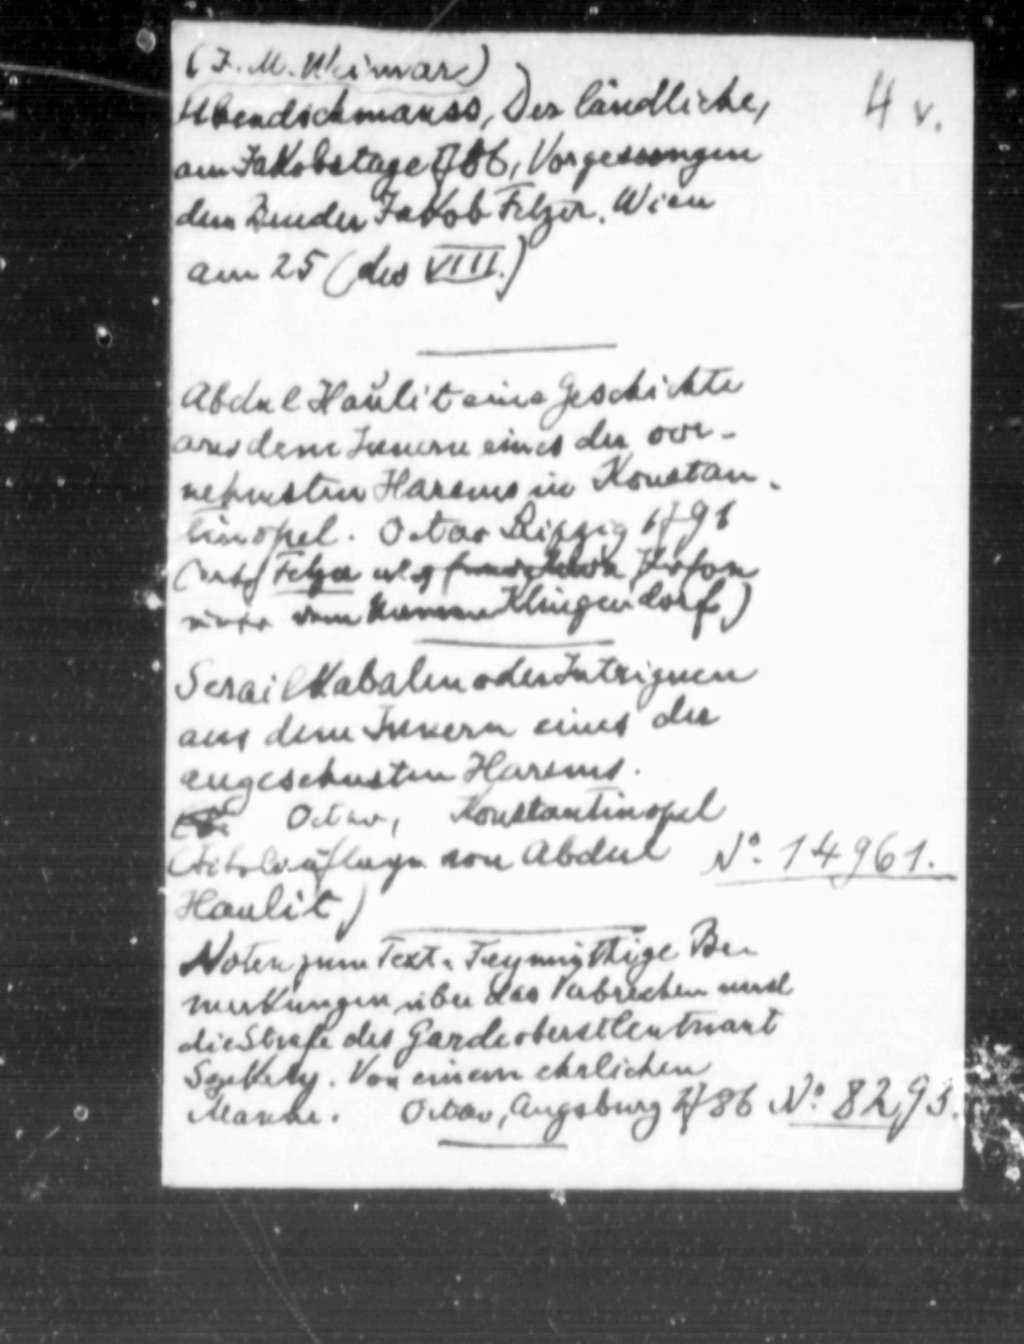 (F. M. Weimar)
Abendschmauss, Der ländliche, 4 v.
am Jakobstage 1786, Vorgesungen
dem Bruder Jakob Felzer. Wien
am 25 (des VIII.)
Abdul Haulit eine Geschichte
aus dem Innern eines der vor-
nehmsten Harems in Konstan-
tinopel. Octav Leipzig 1791
Felzer
Klingendorf)
Serail Kabalen oder Intriguen
aus dem Innern eines der
angesehnsten Harems.
Octav, Konstantinopel
(Titelauflage von Abdul No. 14961.
Haulit)
Noten zum Text. Freymüthige Be-
merkungen über das Verbrechen und
die Strafe des Gardeoberstleutnant
Szekely. Von einem ehrlichen
Manne. Octav, Augsburg 1786 No. 8293.